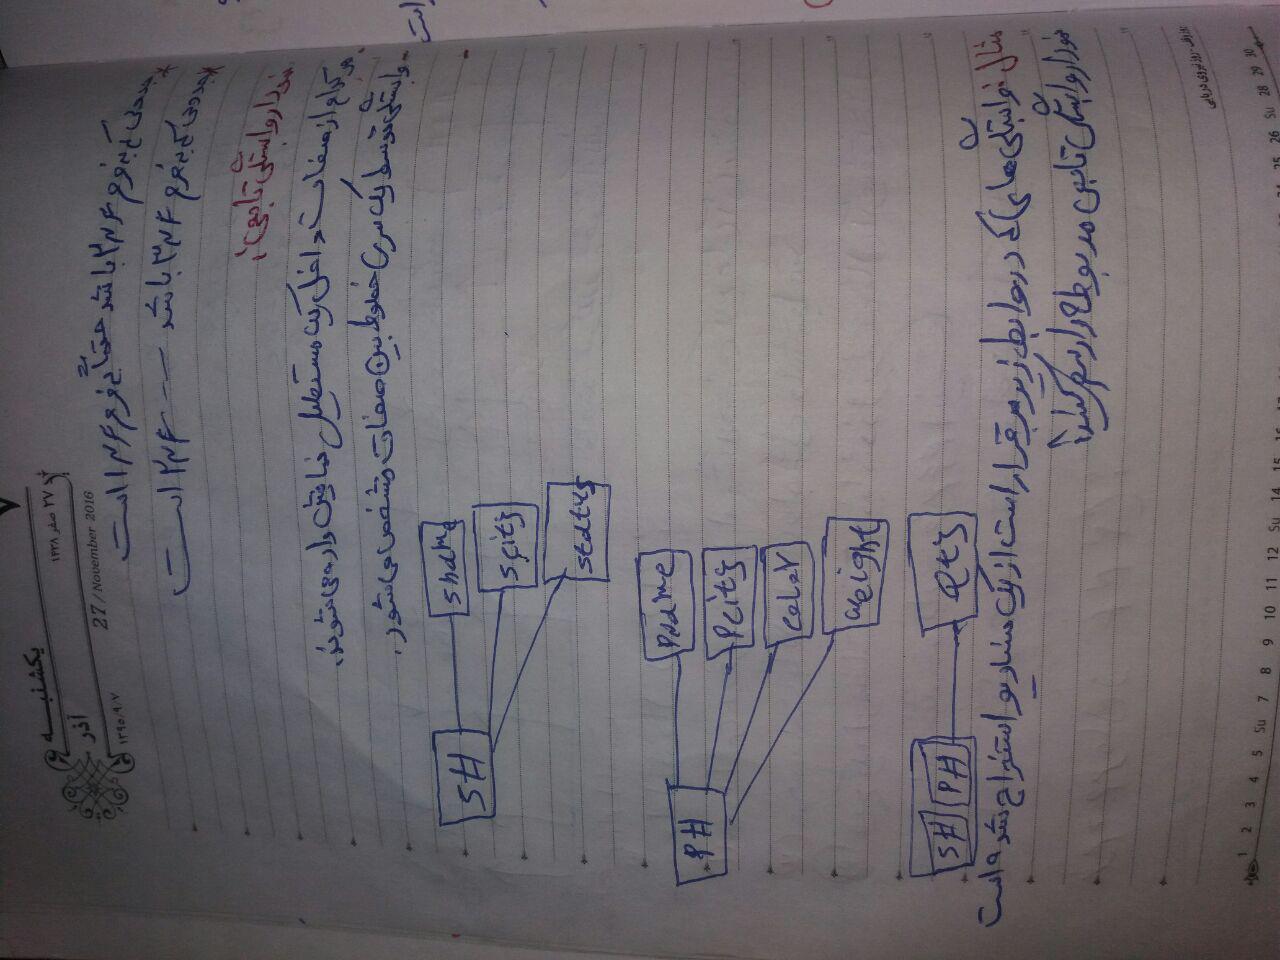 یکشنبه
آذر
۲۷ صفر ۱۴۳۸
27 / November 2016
۱۳۹۵/۹/۷
* جدولی که به فرم ۲NF باشد حتماً به فرم ۱NF است
* جدولی که به فرم ۳NF باشد --- ۲NF است
نمودار وابستگی تابعی:
هر کدام از صفات داخل یک مستطیل نمایش داده می شوند.
- وابستگی توسط یک سری خطوط بین صفات مشخص می شود.
S# sname
scity
status
P# Pname
Pcity
color
weight
S# P# Qty
مثال: وابستگی هایی که در روابط زیر برقرار است از یک سناریو استخراج شده است
نمودار وابستگی تابعی مربوطه را رسم کنید؟
روز وقف - روز نیروی دریایی
1 2 3 4 5 Su 7 8 9 10 11 12 Su 14 15 16 25 26 Su 28 29 30